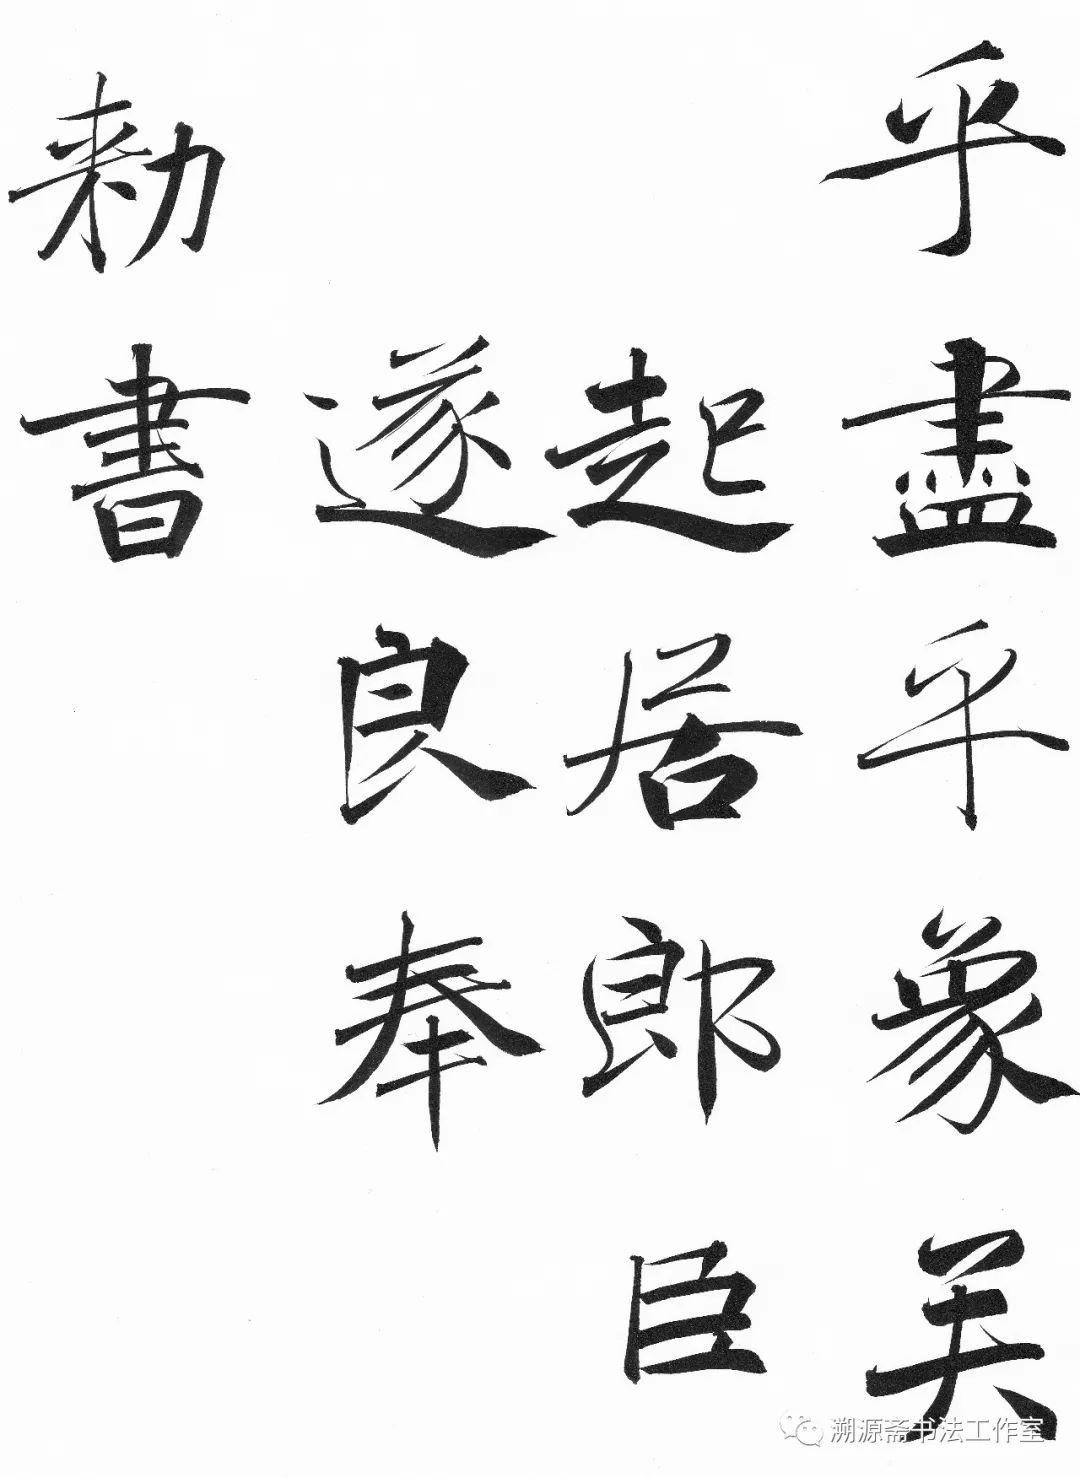 乎盡乎象矣
起居郎臣
遂良奉
勅書
溯源斋书法工作室